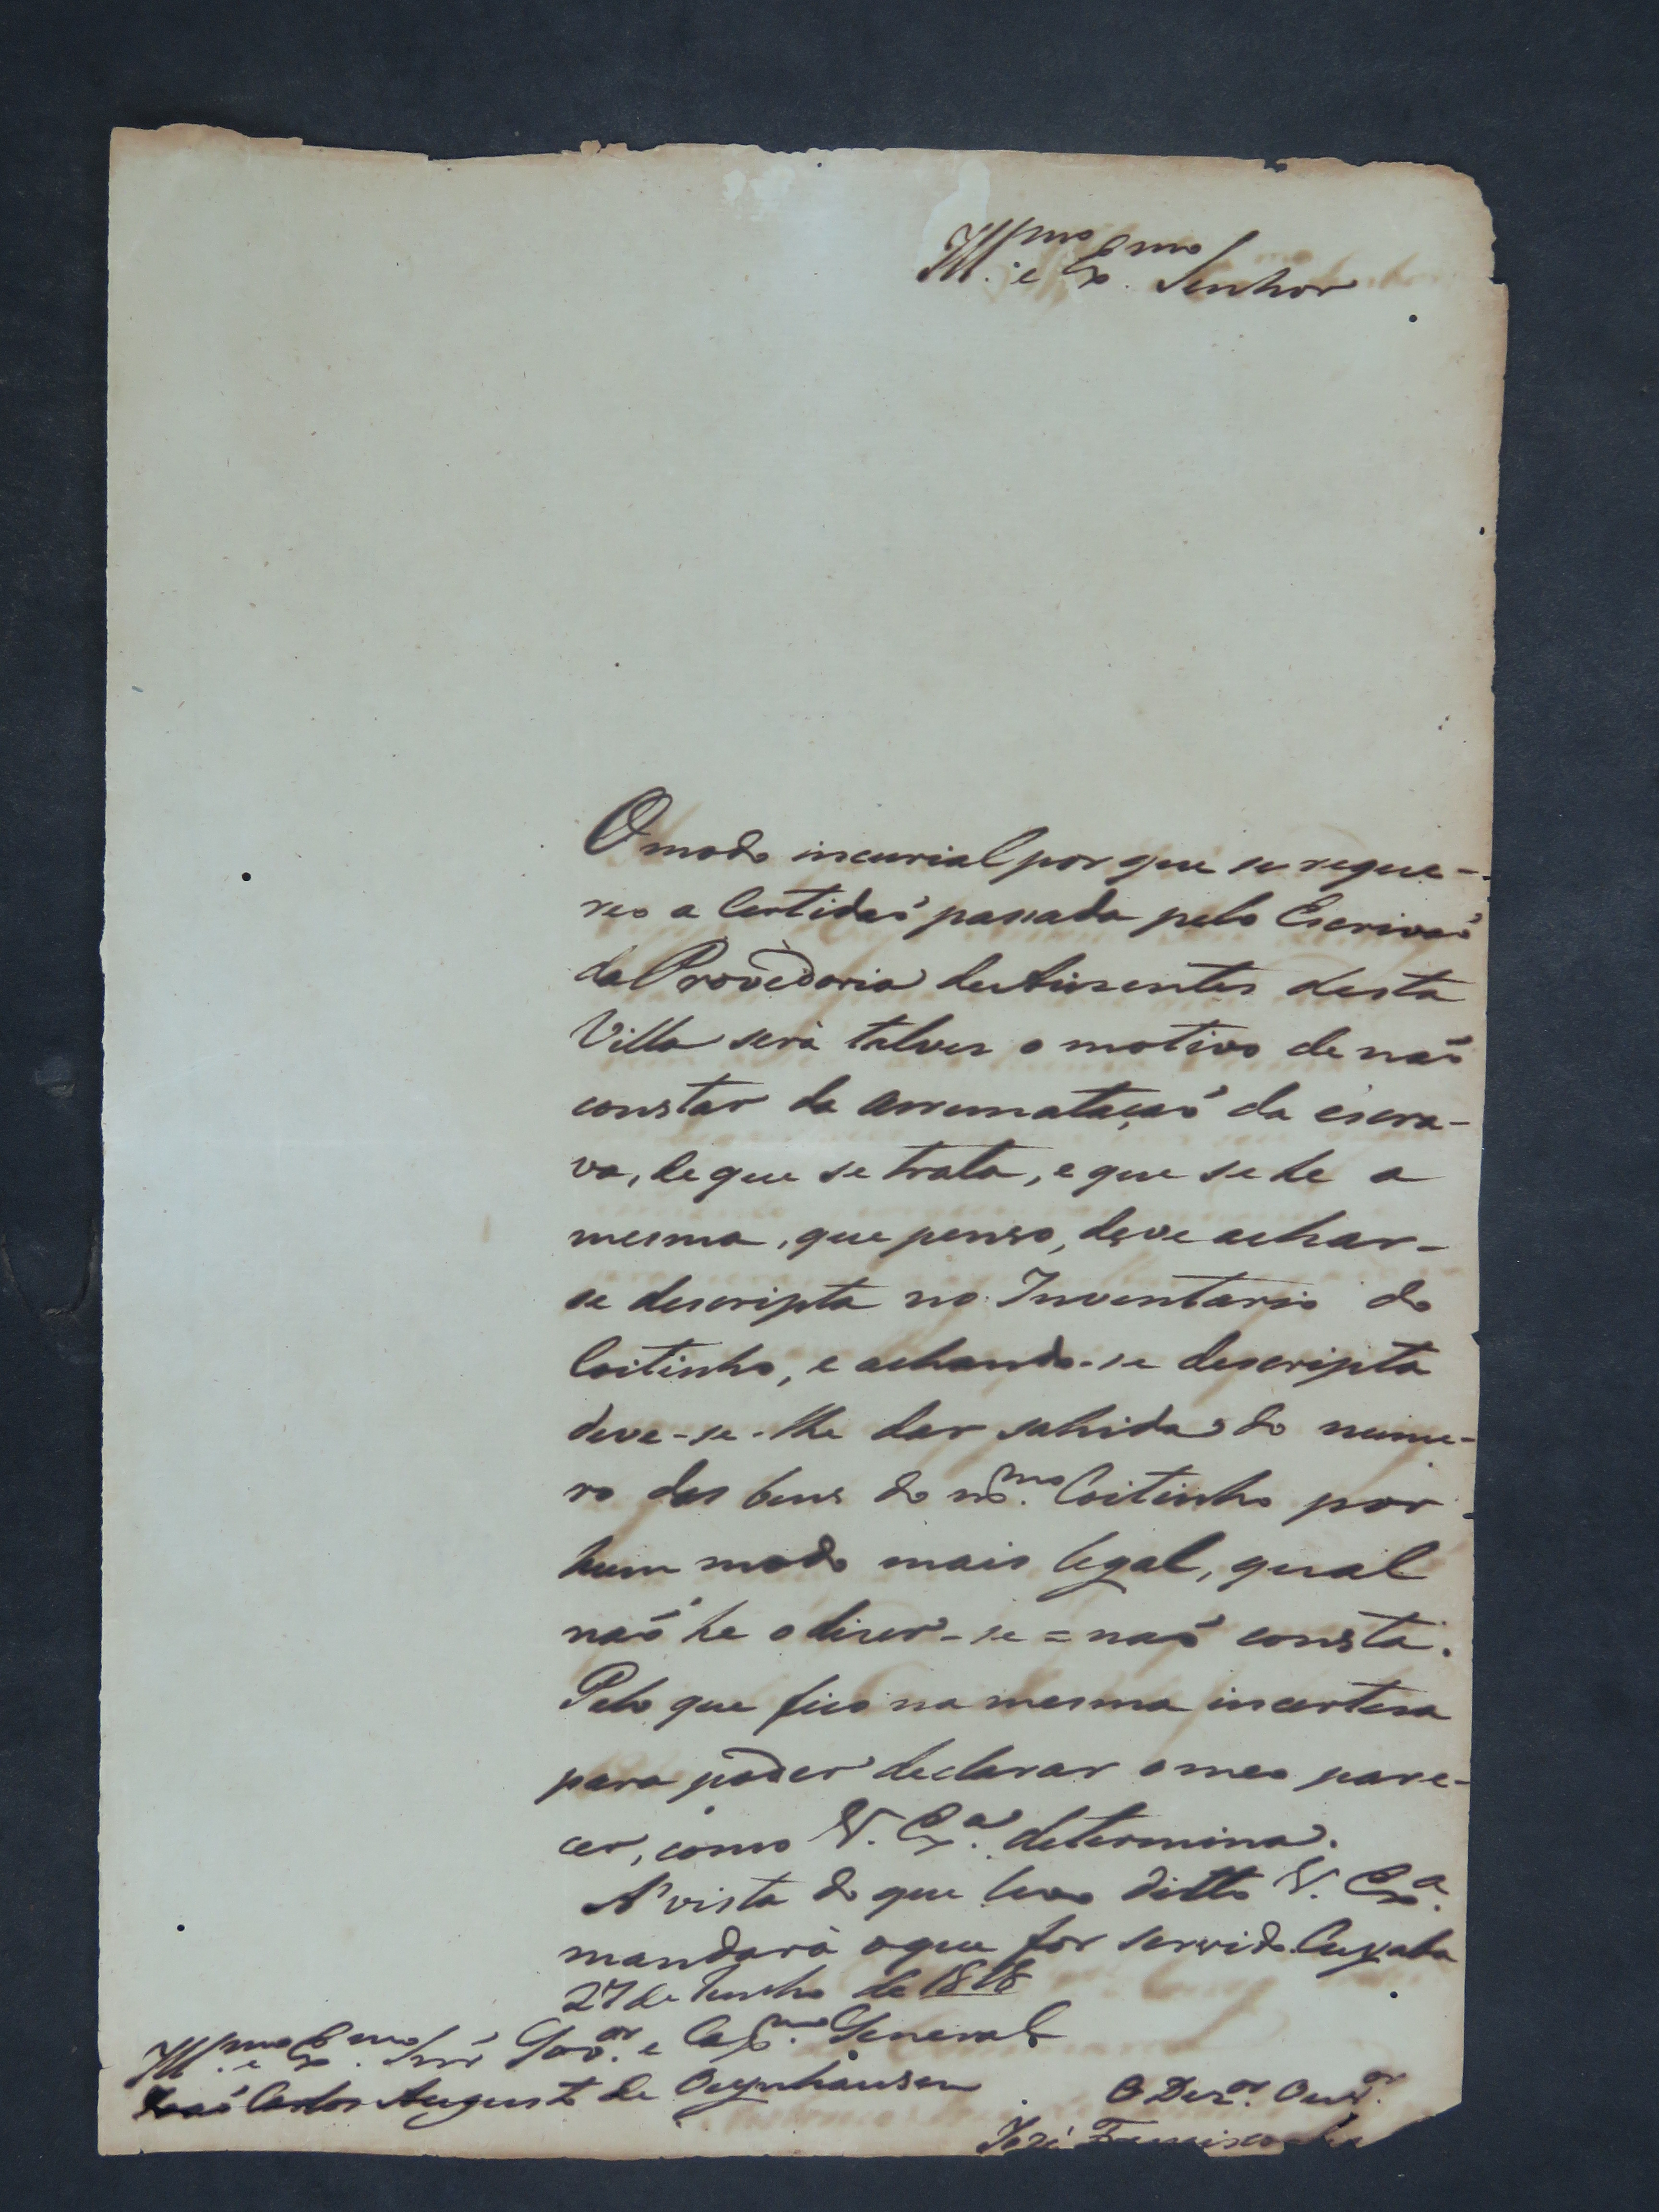 Ill.mo e Ex.mo Senhor
O modo incurial por que se reque-
reo a Certidaõ passada pelo Escrivaõ
da Provedoria de Auzentes desta
Villa serà talvez o motivo de naõ
constar da arremataçaõ da escra-
va, de que se trata, e que se he a
mesma, que penso, deve achar-
se descripta no Inventario do
Coitinho, e achando-se descripta
deve-se-lhe dar sahida do nume-
ro dos bens do m.mo Coitinho por
hum modo mais legal, qual
naõ he o dizer-se = naõ consta.
Pelo que fico na mesma incerteza
para poder declarar o meo pare-
cer, como V. Ex.a determina.
A' vista do que levo ditto V. Ex.a
mandarà o que for servido. Cuyaba
27 de Junho de 1818
Ill.mo e Ex.mo Snr̃ Gov.or e Cap.m General
Joaõ Carlos Augusto de Oeynhausen
O Dez.or Ouv.or
Jozé Francisco